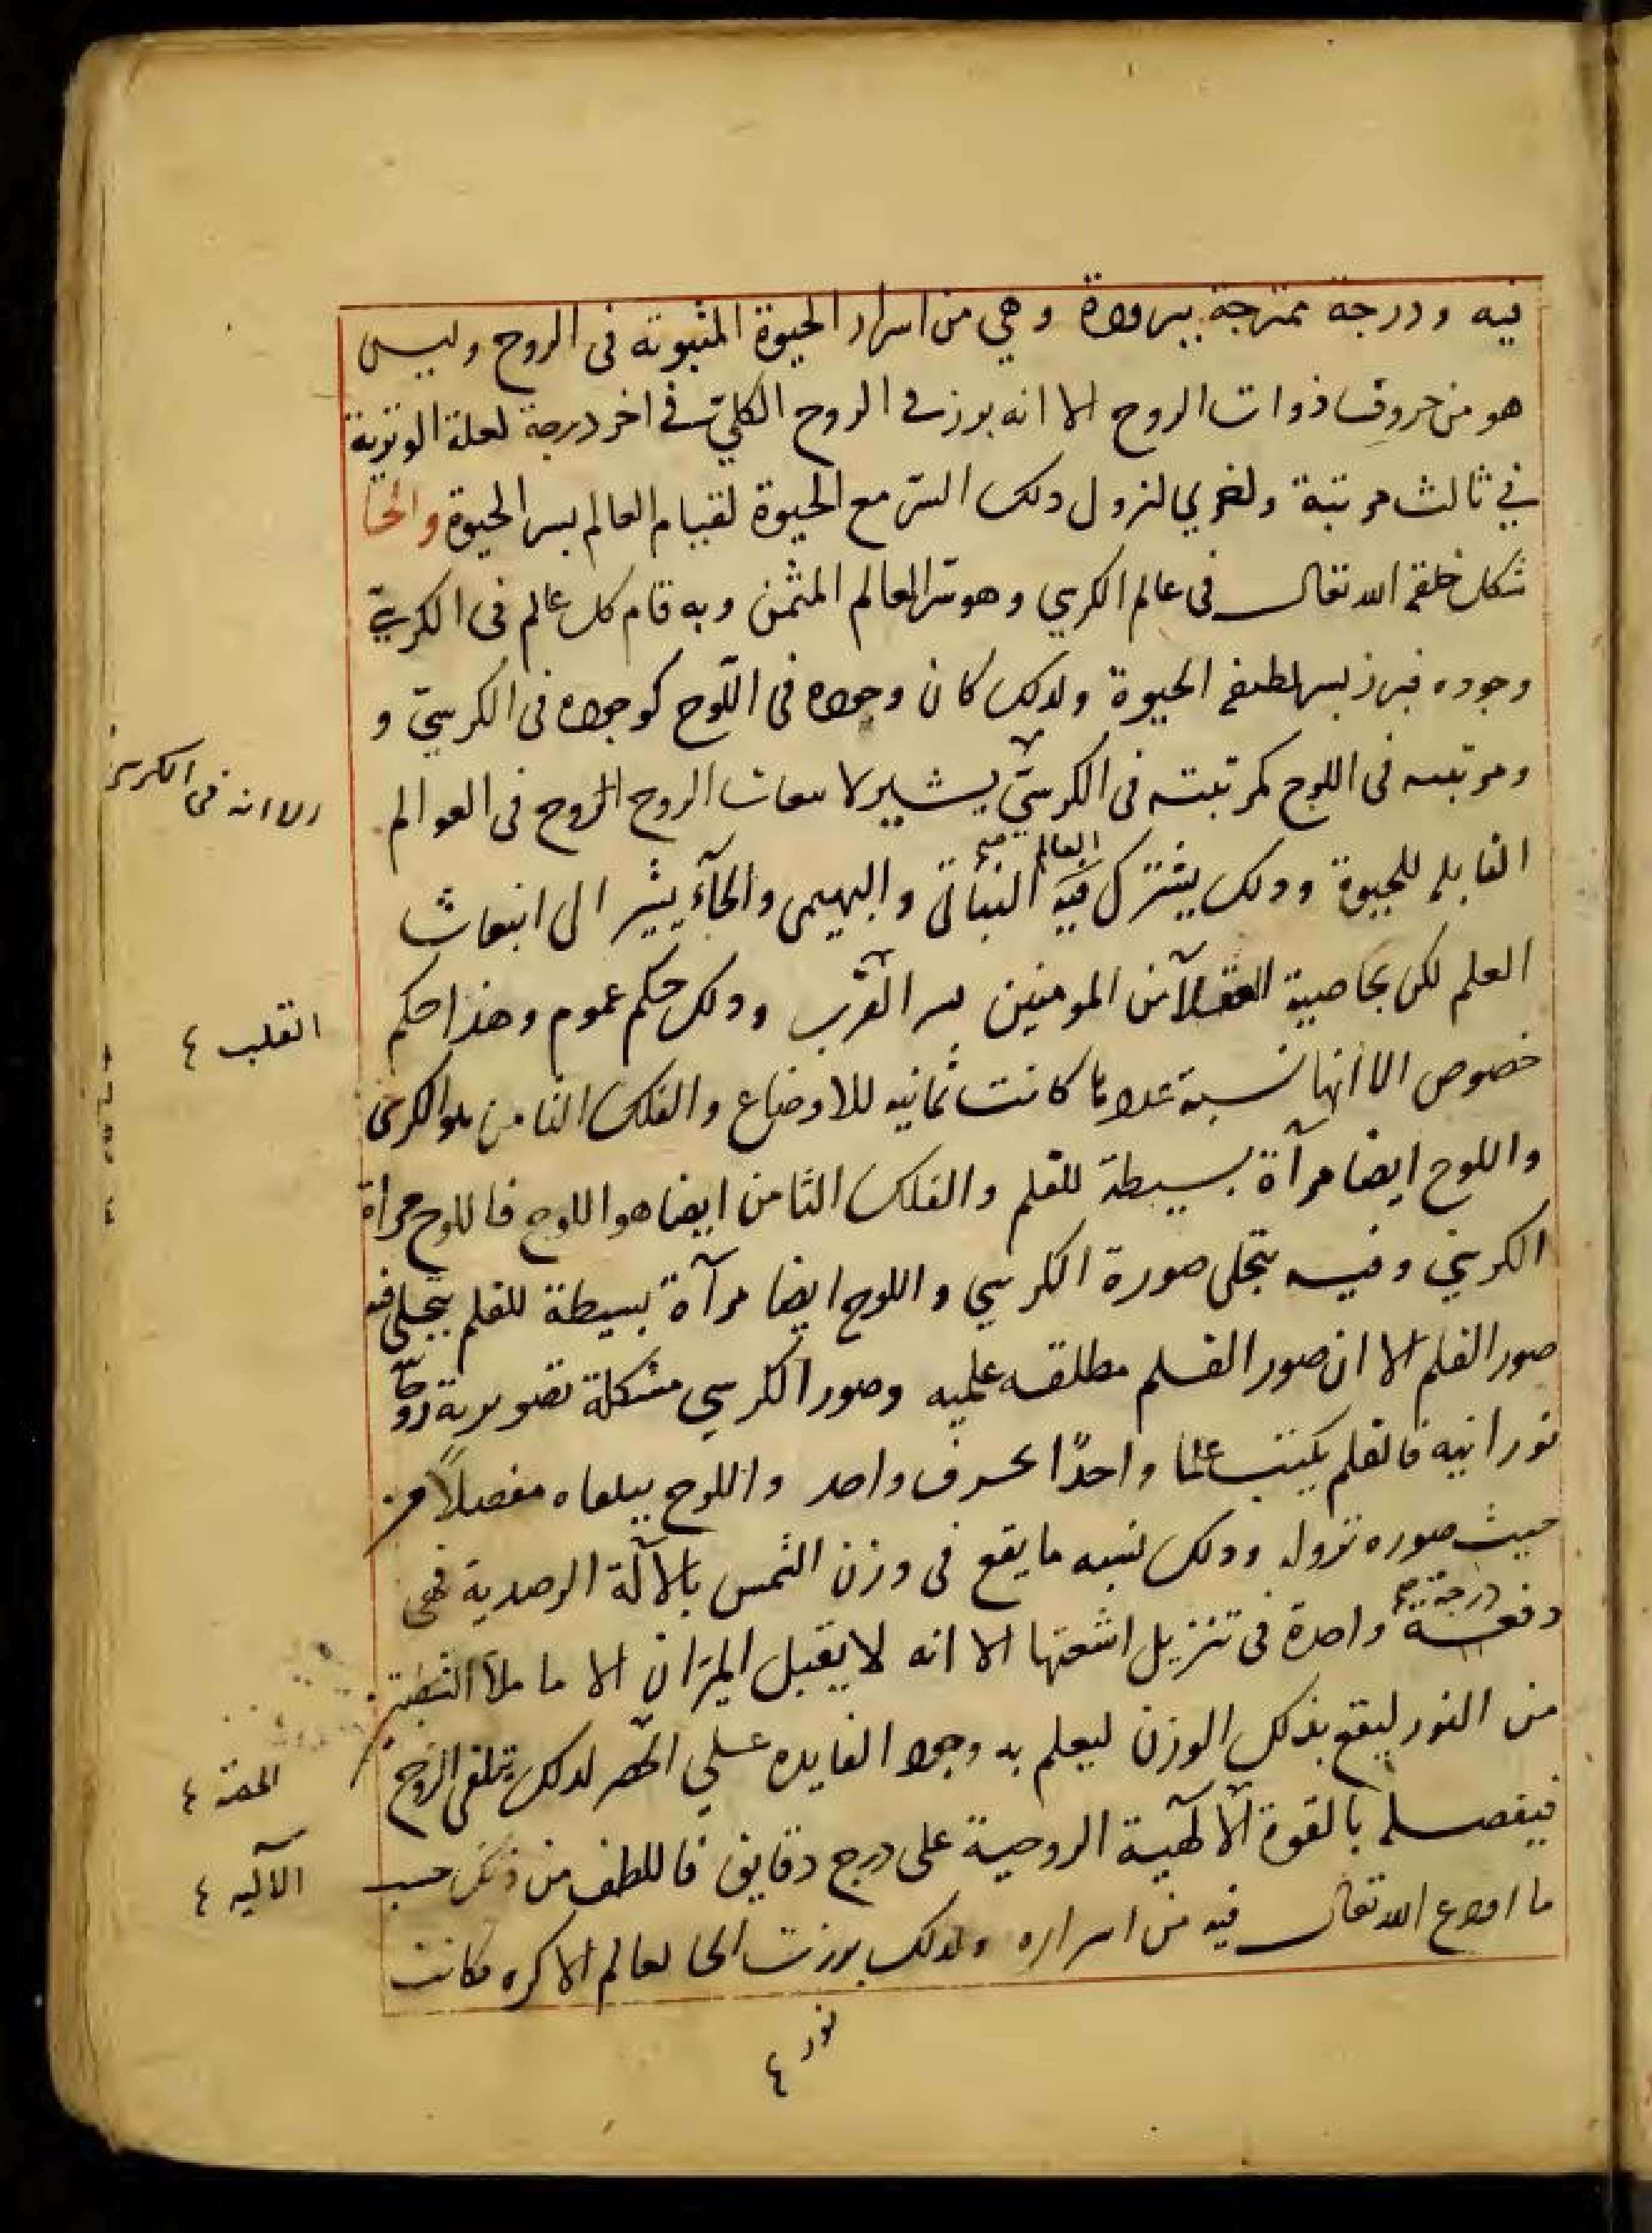 فيه ودرجة ممتزجة ببرودة وهي من اسرار الحيوة المثبوته فى الروح وليس
هو من حروف ذوات الروح الا انه برز فى الروح الكلي فى اخر درجة لعلة الوترية
في ثالث مرتبة ولغري لنزول دلك السر مع الحيوة لقيام العالم بسر الحيوة والحا
شكل خلقه الله تعالى فى عالم الكرسي وهو سر العالم المثمن وبه قام كل عالم فى الكرسي
وجوده فبرز بسر لطيفه الحيوة ولدلك كان وجوده فى اللوح كوجوده فى الكرسي و
ومرتبته فى اللوح كمرتبته فى الكرسي يشير لا الروح الروح فى العوالم
الا انه فى الكرسي
القابله للحيوة ودلك يشترك فيه العالم صح النباتى والبهيمى والحآء يشير الى انبعاث
العلم لكن بخاصية المؤمنين بسر القرب ودلك حكم عموم وهذا حكم
القلب ٤
خصوص الا انها نسبة كانت ثمانيه للاوضاع والفلك الثامن هو الكرسى
واللوح ايضا مرآة بسيطة للقلم والفلك الثامن ايضا هو اللوح فاللوح مرآة
الكرسي وفيه يتجلى صورة الكرسي واللوح ايضا مرآة بسيطة للقلم يتجلى فيه
صور القلم الا ان صور القلم مطلقه علميه وصور الكرسي مشكلة تصويرية روحا
نورانيه فالقلم يكتب علما واحدًا بحرف واحد واللوح يتلقاه مفصلاً من
حيث صوره نزوله ودلك نسبه ما يقع فى وزن الشمس بالآلة الرصدية فهى
دفعة درجة صح واحدة فى تنزيل اشعتها الا انه لا يقبل الميزان الا ما ملأ
من النور ليقع بذلك الوزن ليعلم به وجود الفايده على لدلك يتلقى الروح
فيفصله بالقوة الآلهية الروحية على درج دقايق فاللطف من ذلك حسب
الآليه ٤
ما اودع الله تعالى فيه من اسراره ولدلك برزت الحا لعالم الاكره فكانت
نور ٤